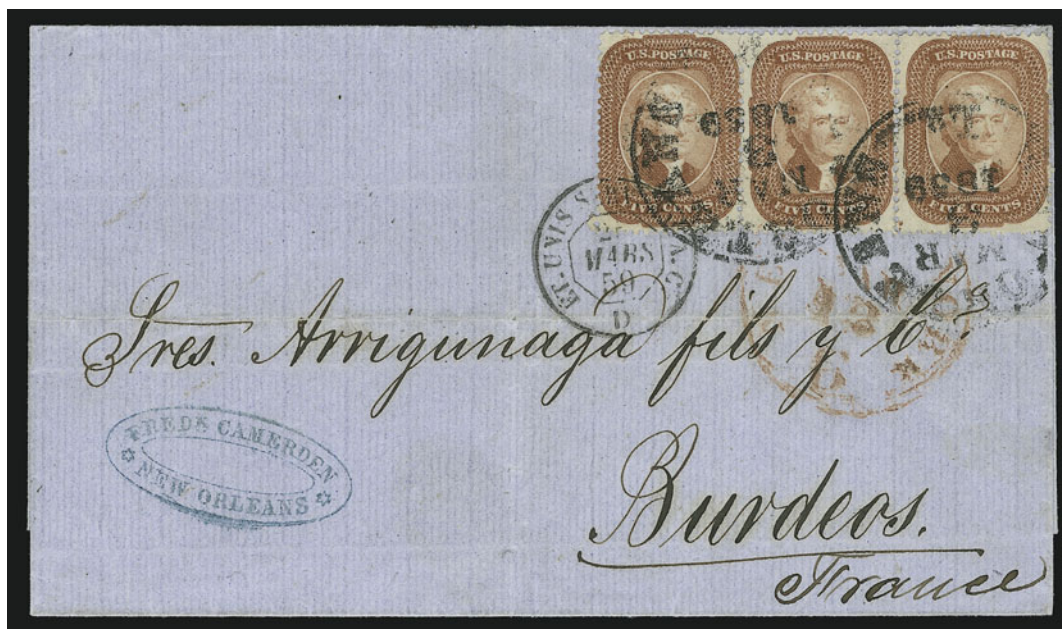 U.S. POSTAGE
FIVE CENTS
U.S. POSTAGE
FIVE CENTS
U.S. POSTAGE
FIVE CENTS
1859
MAR
La
1859
MAR
MARS
59
D
Sres. Arrigunaga fils y Cª
FREDK CAMERDEN
NEW ORLEANS
Burdeos.
France